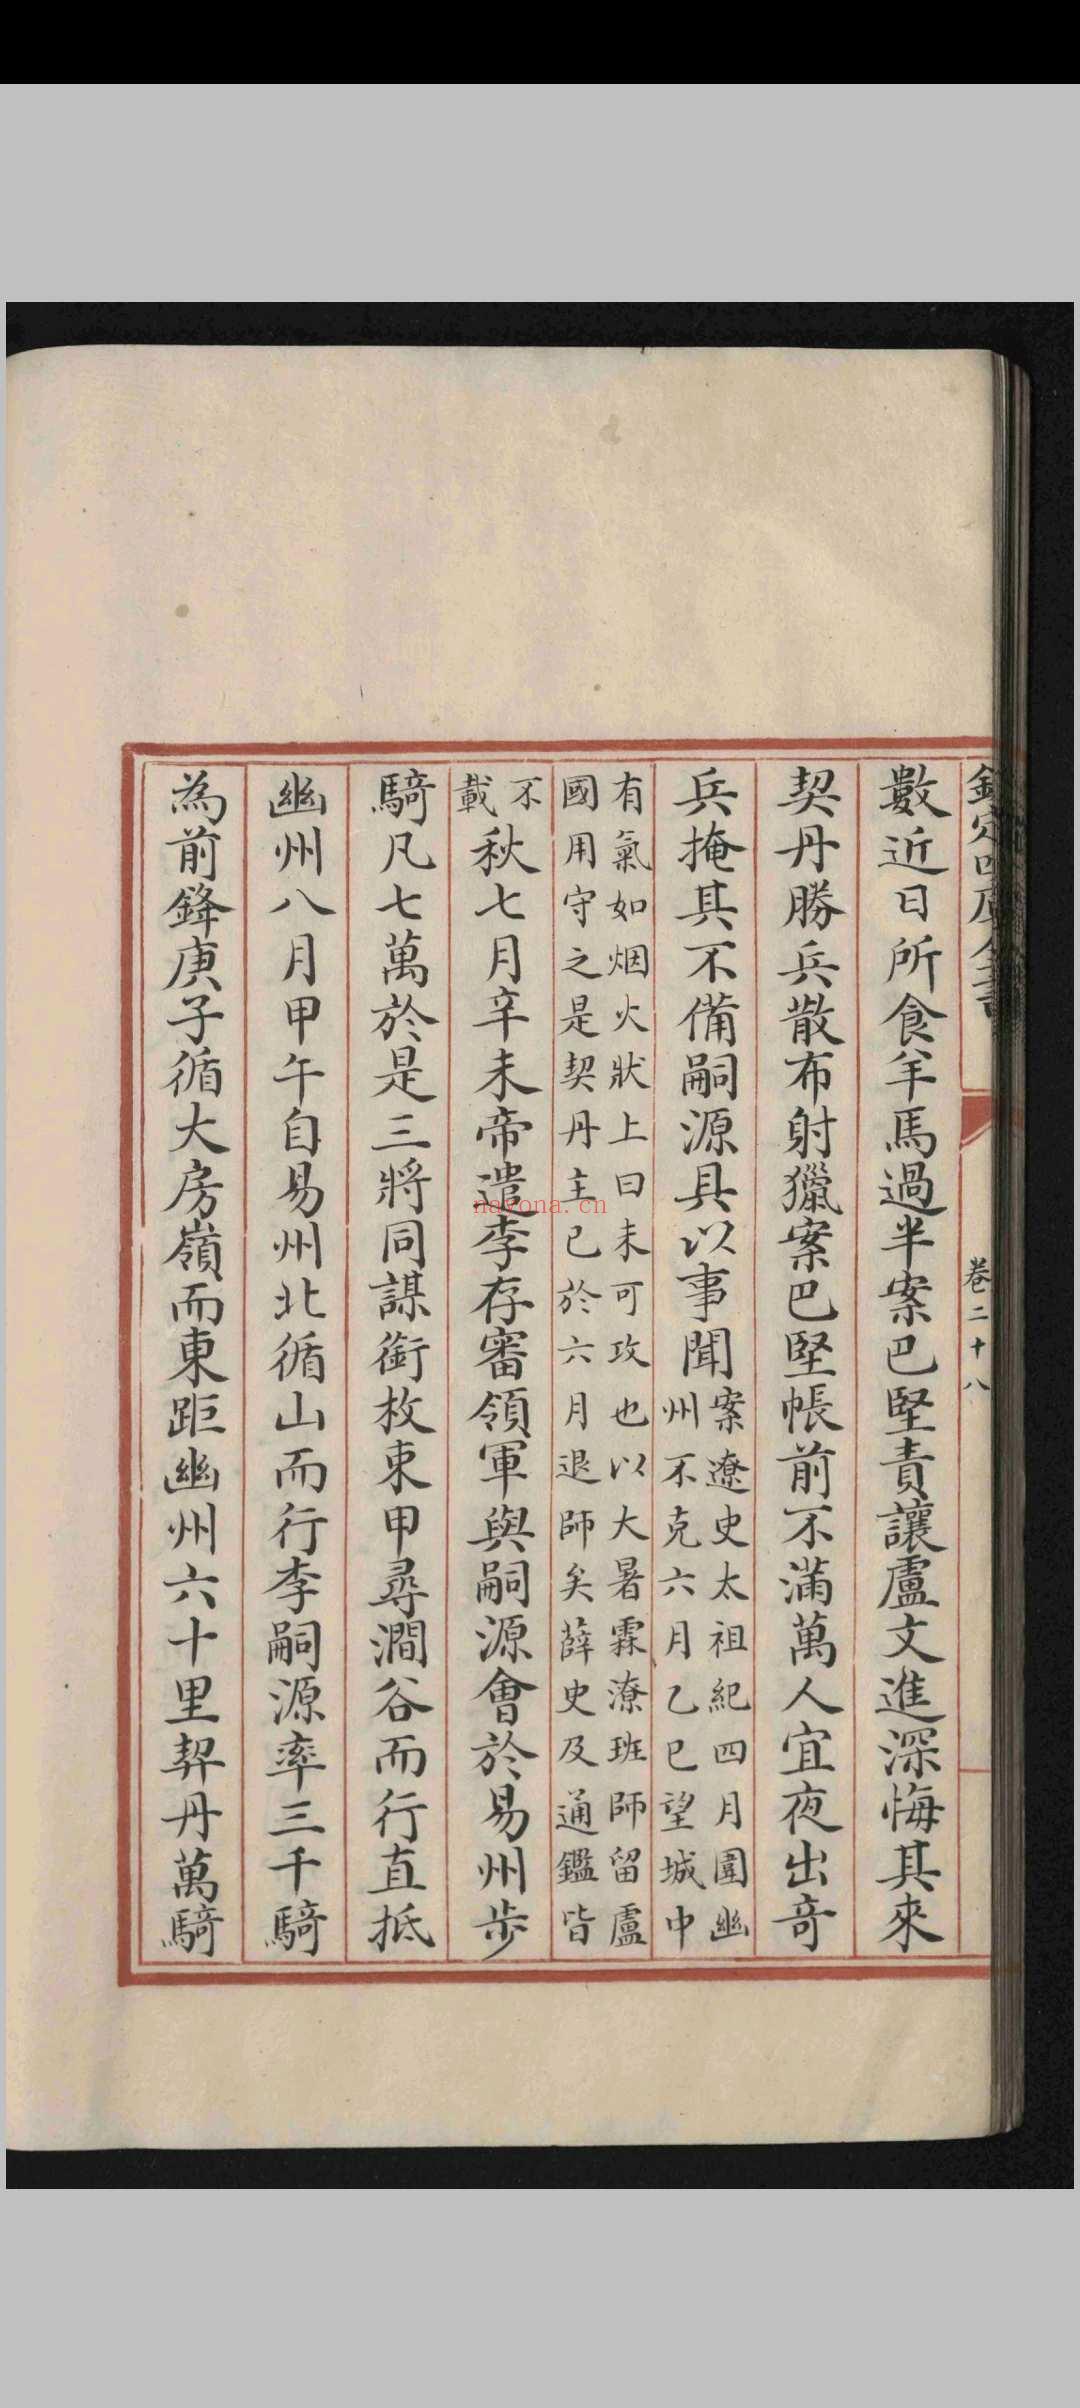 欽定四庫全書
卷二十八
數近日所食羊馬過半案巴堅責讓盧文進深悔其來
契丹勝兵散布射獵案巴堅帳前不滿萬人宜夜出奇
兵掩其不備嗣源具以事聞
案遼史太祖紀四月圍幽
州不克六月乙巳望城中
有氣如烟火狀上曰未可攻也以大暑霖潦班師留盧
國用守之是契丹主已於六月退師矣薛史及通鑑皆
不
載
秋七月辛未帝遣李存審領軍與嗣源會於易州步
騎凡七萬於是三將同謀銜枚束甲尋澗谷而行直抵
幽州八月甲午自易州北循山而行李嗣源率三千騎
為前鋒庚子循大房嶺而東距幽州六十里契丹萬騎
nayona.cn